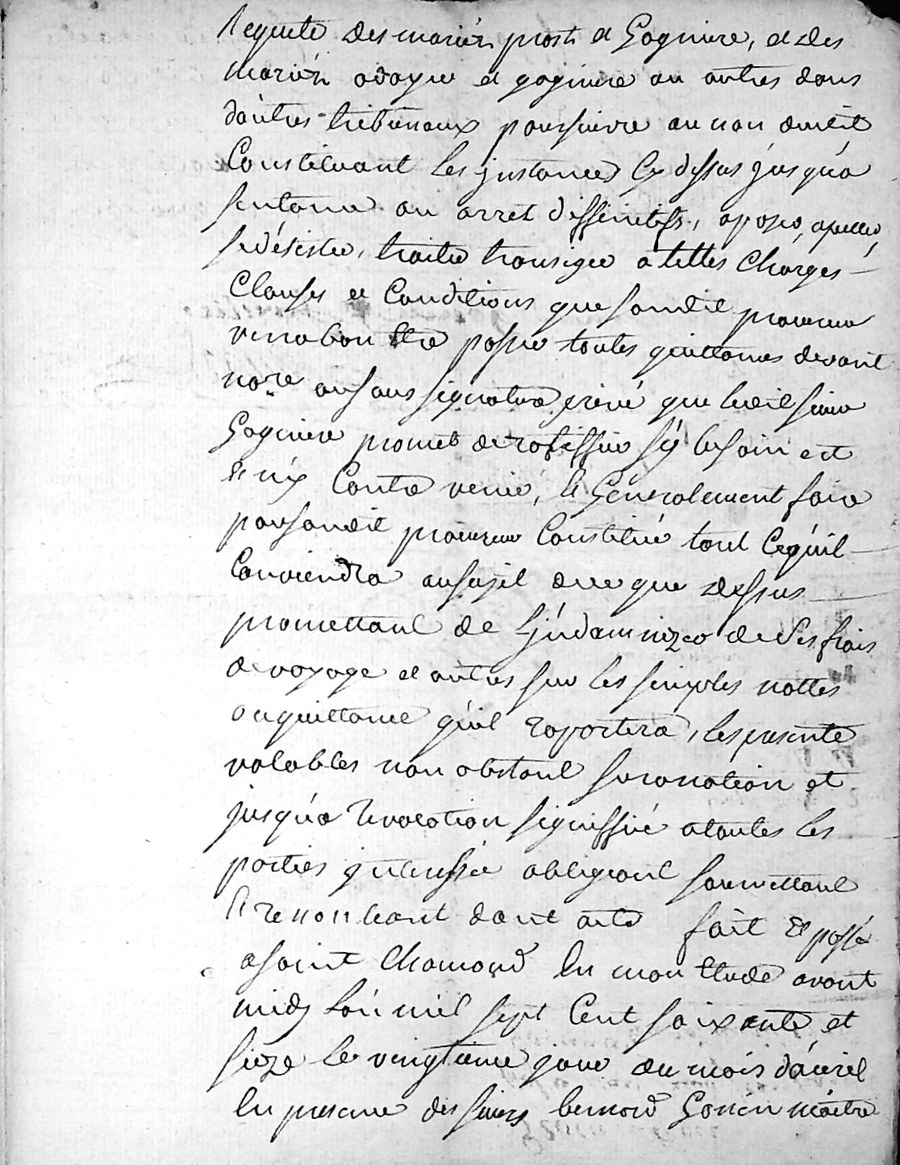 Requete des mariés prost et Gogniere, et des
mariés et gogniere ou autres dans
d'autres tribunaux poursuivre au nom dudit
Constituant les instances Cy dessus jusqu'a
sentence ou arret deffinitifs, oposer, apeller,
se désister, traiter transiger a telles charges
Clauses et Conditions que sondit procureur
verra bon etre passer toutes quittances devant
nore ou sous signature privé que ledit sieur
Gogniere promet de ratiffier sy besoin est
Contre venir, et Généralement faire
par sondit procureur Constitué tout Ce quil
Conviendra au sujet de ce que dessus
promettant de L'jndamnizer de Ses frais
de voyage et autres sur les simples nottes
ou quittance qu'il raportera, les presente
valables non obstant suranation et
jusqu'a revocation signiffiée a toutes les
parties jnteressée obligeant soumettant
Et renonceant dont acte fait & passé
a Saint Chamond En mon Etude avant
midy L'an mil sept Cent soixante et
seize le vingtieme jour du mois d'avril
En presence des sieurs bernard Gonin maitre